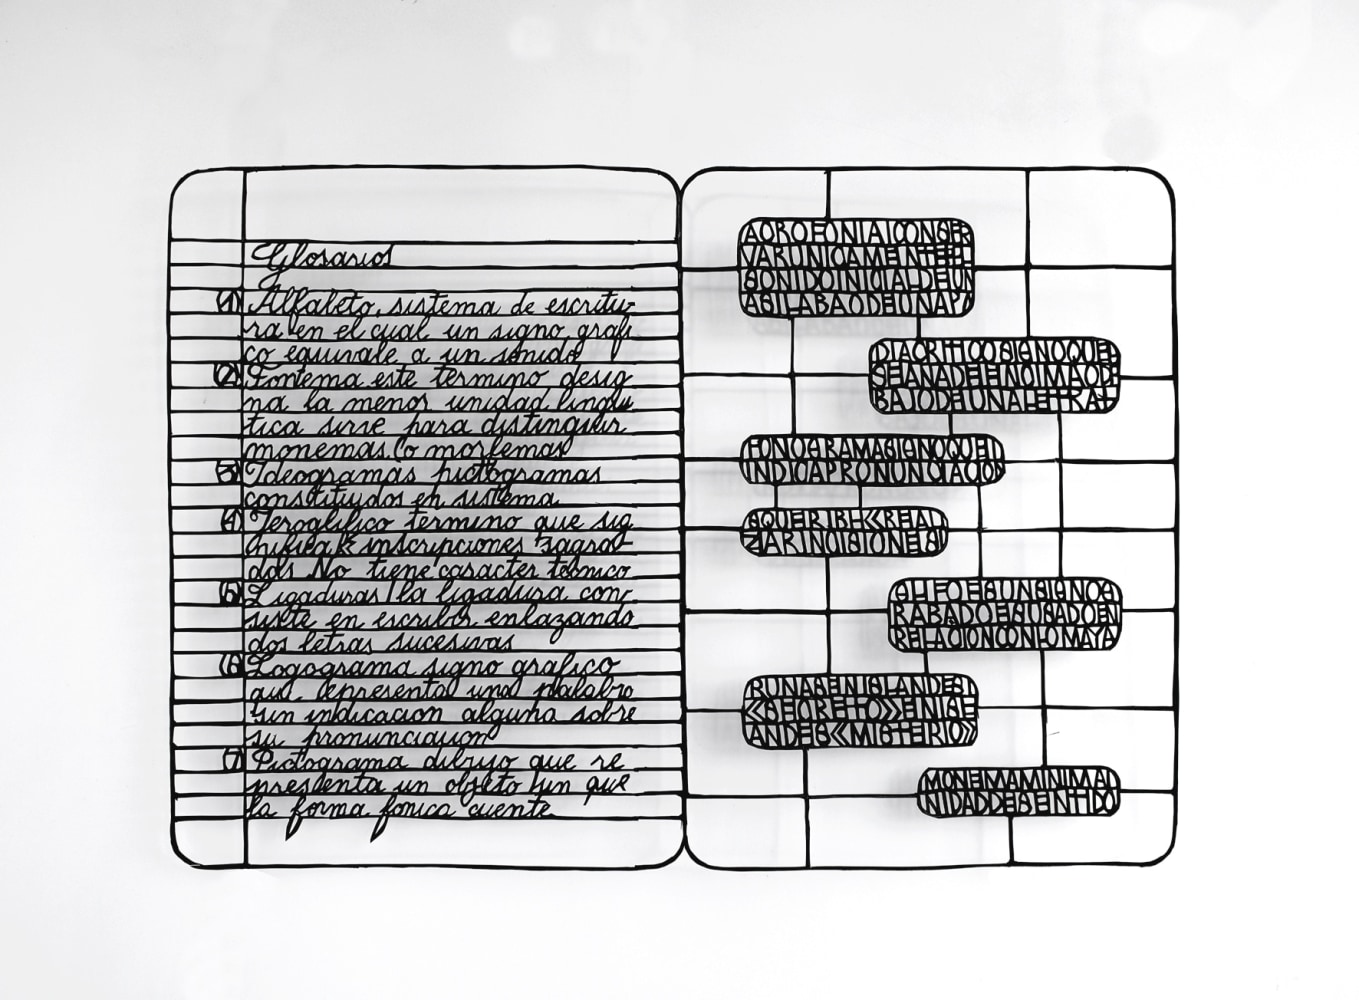 Glosarios
(1) Alfabeto, sistema de escritu-
ra en el cual un signo grafi
co equivale a un sonido
(2) Fontema este termino desig
na la menor unidad lingüis
tica sirve para distinguir
monemas o morfemas
(3) Ideogramas pictogramas
constituidos en sistema
(4) Jeroglifico termino que sig
nifica inscripciones sagra-
das No tiene caracter tecnico
(5) Ligaduras la ligadura con-
siste en escribir enlazando
dos letras sucesivas
(6) Logograma signo grafico
que representa una palabra
sin indicacion alguna sobre
su pronunciacion
(7) Pictograma dibujo que re
presenta un objeto sin que
la forma fonica cuente
ACROFONIACONSER
VARUNICAMENTEEL
SONIDOINICIALDEUN
ASILABAODEUNAPA
DIACRITICOSIGNOQUE
SEANADEENCIMAODE
BAJODEUNALETRA
FONOGRAMASIGNOQUE
INDICAPRONUNCIACION
ZARINCISIONES
GLIFOESUNSIGNOG
RABADOESUSADOEN
RELACIONCONLOMAYA
RUNASENISLANDES
«SECRETO»ENISL
ANDES«MISTERIO»
MONEMAMINIMAU
NIDADDESENTIDO